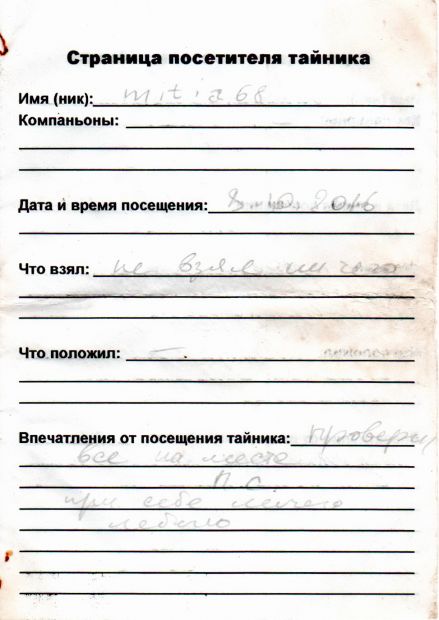 Страница посетителя тайника
Имя (ник): mitia68
Компаньоны: —
Дата и время посещения: 8.10.2016
Что взял: не взял ни чего
Что положил: —
Впечатления от посещения тайника: проверил
все на месте
П.С.
при себе ничего
небыло